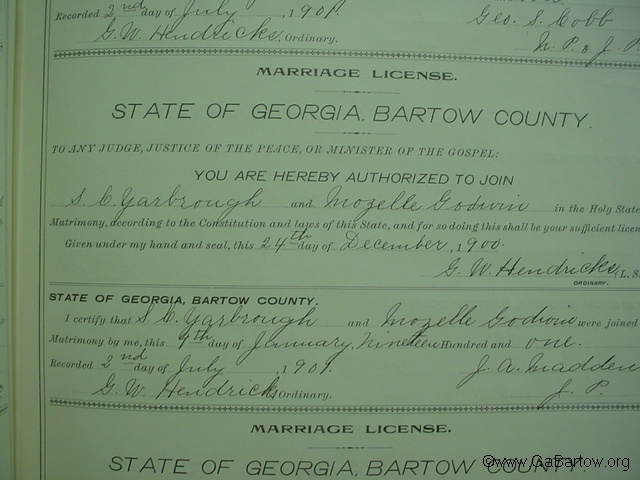 Recorded 2nd day of July, 1901. Geo. S. Cobb
G. W. Hendricks, Ordinary. N. P. & J. P.
MARRIAGE LICENSE.
STATE OF GEORGIA, BARTOW COUNTY.
TO ANY JUDGE, JUSTICE OF THE PEACE, OR MINISTER OF THE GOSPEL:
YOU ARE HEREBY AUTHORIZED TO JOIN
S. C. Yarbrough and Mozelle Godwin in the Holy State
Matrimony, according to the Constitution and laws of this State, and for so doing this shall be your sufficient licen
Given under my hand and seal, this 24th day of December, 1900.
G. W. Hendricks (L. S.
ORDINARY.
STATE OF GEORGIA, BARTOW COUNTY.
I certify that S. C. Yarbrough and Mozelle Godwin were joined
Matrimony by me, this 9th day of January, Nineteen Hundred and one.
Recorded 2nd day of July, 1901. J. A. Madden
G. W. Hendricks, Ordinary. J. P.
MARRIAGE LICENSE.
STATE OF GEORGIA, BARTOW COUNTY.
©www.GaBartow.org